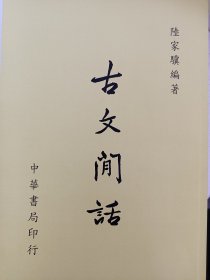 陸家驥編著
古文閒話
中華書局印行